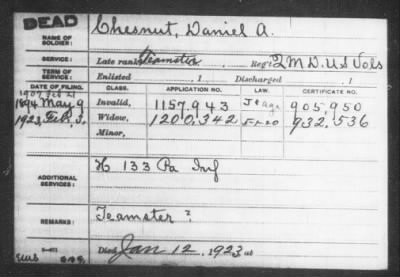 DEAD
NAME OF SOLDIER: Chesnut, Daniel A.
SERVICE: Late rank Teamster, Reg't Q M D. U S Vols
TERM OF SERVICE: Enlisted , 1 Discharged , 1
DATE OF FILING. CLASS. APPLICATION NO. LAW. CERTIFICATE NO.
1907 Feb 21
1894 May 9 Invalid, 1157.943 905,950
1923, Feb. 3. Widow, 1200.342 932,536
Minor,
ADDITIONAL SERVICES: H 133 Pa Inf
REMARKS: Teamster ?
Died Jan 12, 1923 at